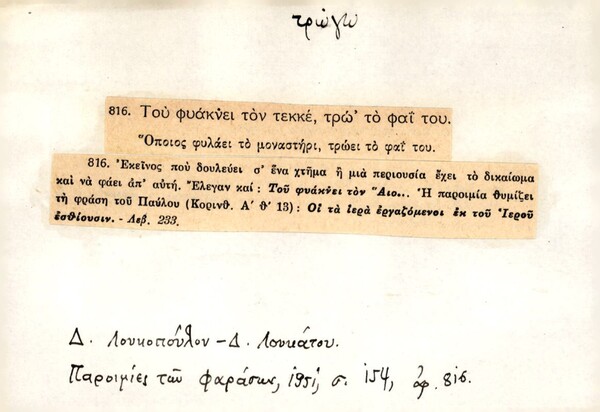 τρώγω
816. Τοῦ φυάκνει τὸν τεκκέ, τρώ' τὸ φαΐ του.
Ὅποιος φυλάει τὸ μοναστήρι, τρώει τὸ φαΐ του.
816. Ἐκεῖνος ποὺ δουλεύει σ' ἕνα χτῆμα ἢ μιὰ περιουσία ἔχει τὸ δικαίωμα
καὶ νὰ φάει ἀπ' αὐτή. Ἔλεγαν καί: Τοῦ φυάκνει τὸν Ἅιο... Ἡ παροιμία θυμίζει
τὴ φράση τοῦ Παύλου (Κορινθ. Α' θ' 13): Οἱ τὰ ἱερὰ ἐργαζόμενοι ἐκ τοῦ Ἱεροῦ
ἐσθίουσιν. - Λεβ. 233.
Δ. Λουκοπούλου – Δ. Λουκάτου.
Παροιμίες τῶν Φαράσων, 1951, σ. 154, ἀρ. 816.